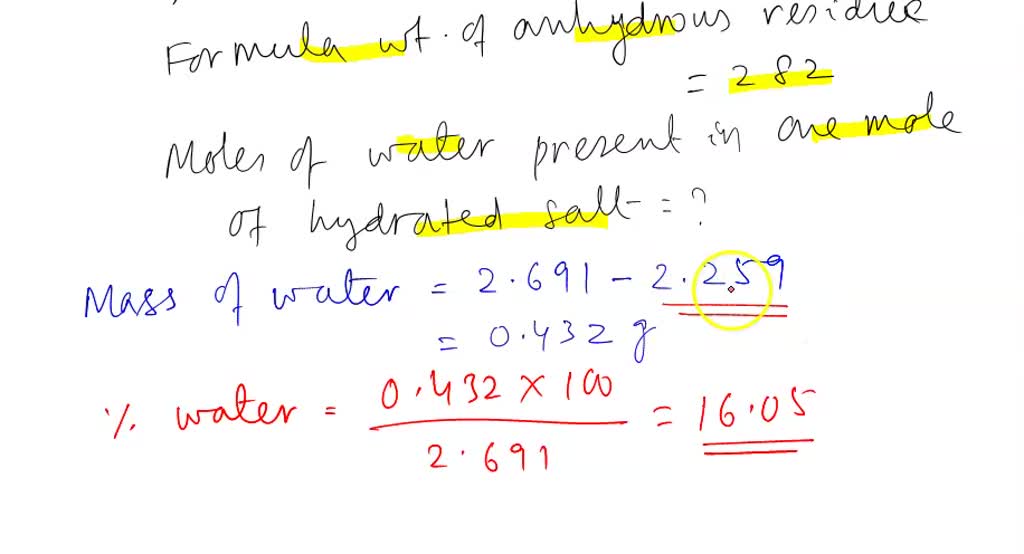 Formula wt. of anhydrous residue
= 282
Moles of water present in one mole
of hydrated salt = ?
Mass of water = 2.691 - 2.259
= 0.432 g
% water = 0.432 x 100 / 2.691 = 16.05